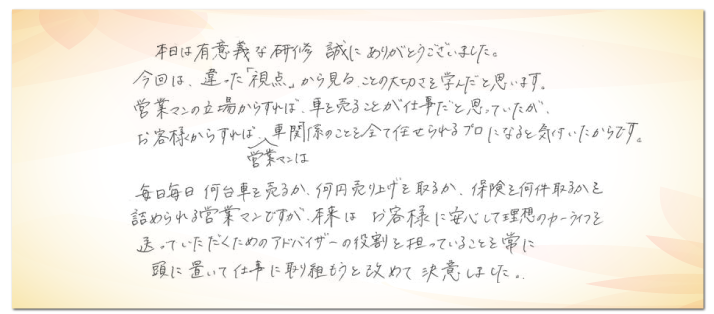 本日は有意義な研修 誠にありがとうございました。
今回は、違った「視点」から見る、ことの大切さを学んだと思います。
営業マンの立場からすれば、車を売ることが仕事だと思っていたが、
お客様からすれば、車関係のことを全て任せられるプロになると気付いたからです。
営業マンは
毎日毎日 何台車を売るか、何円売り上げを取るか、保険を何件取るかを
詰められる営業マンですが、本来は お客様に安心して理想のカーライフを
送っていただくためのアドバイザーの役割を担っていることを常に
頭に置いて仕事に取り組もうと改めて決意しました。